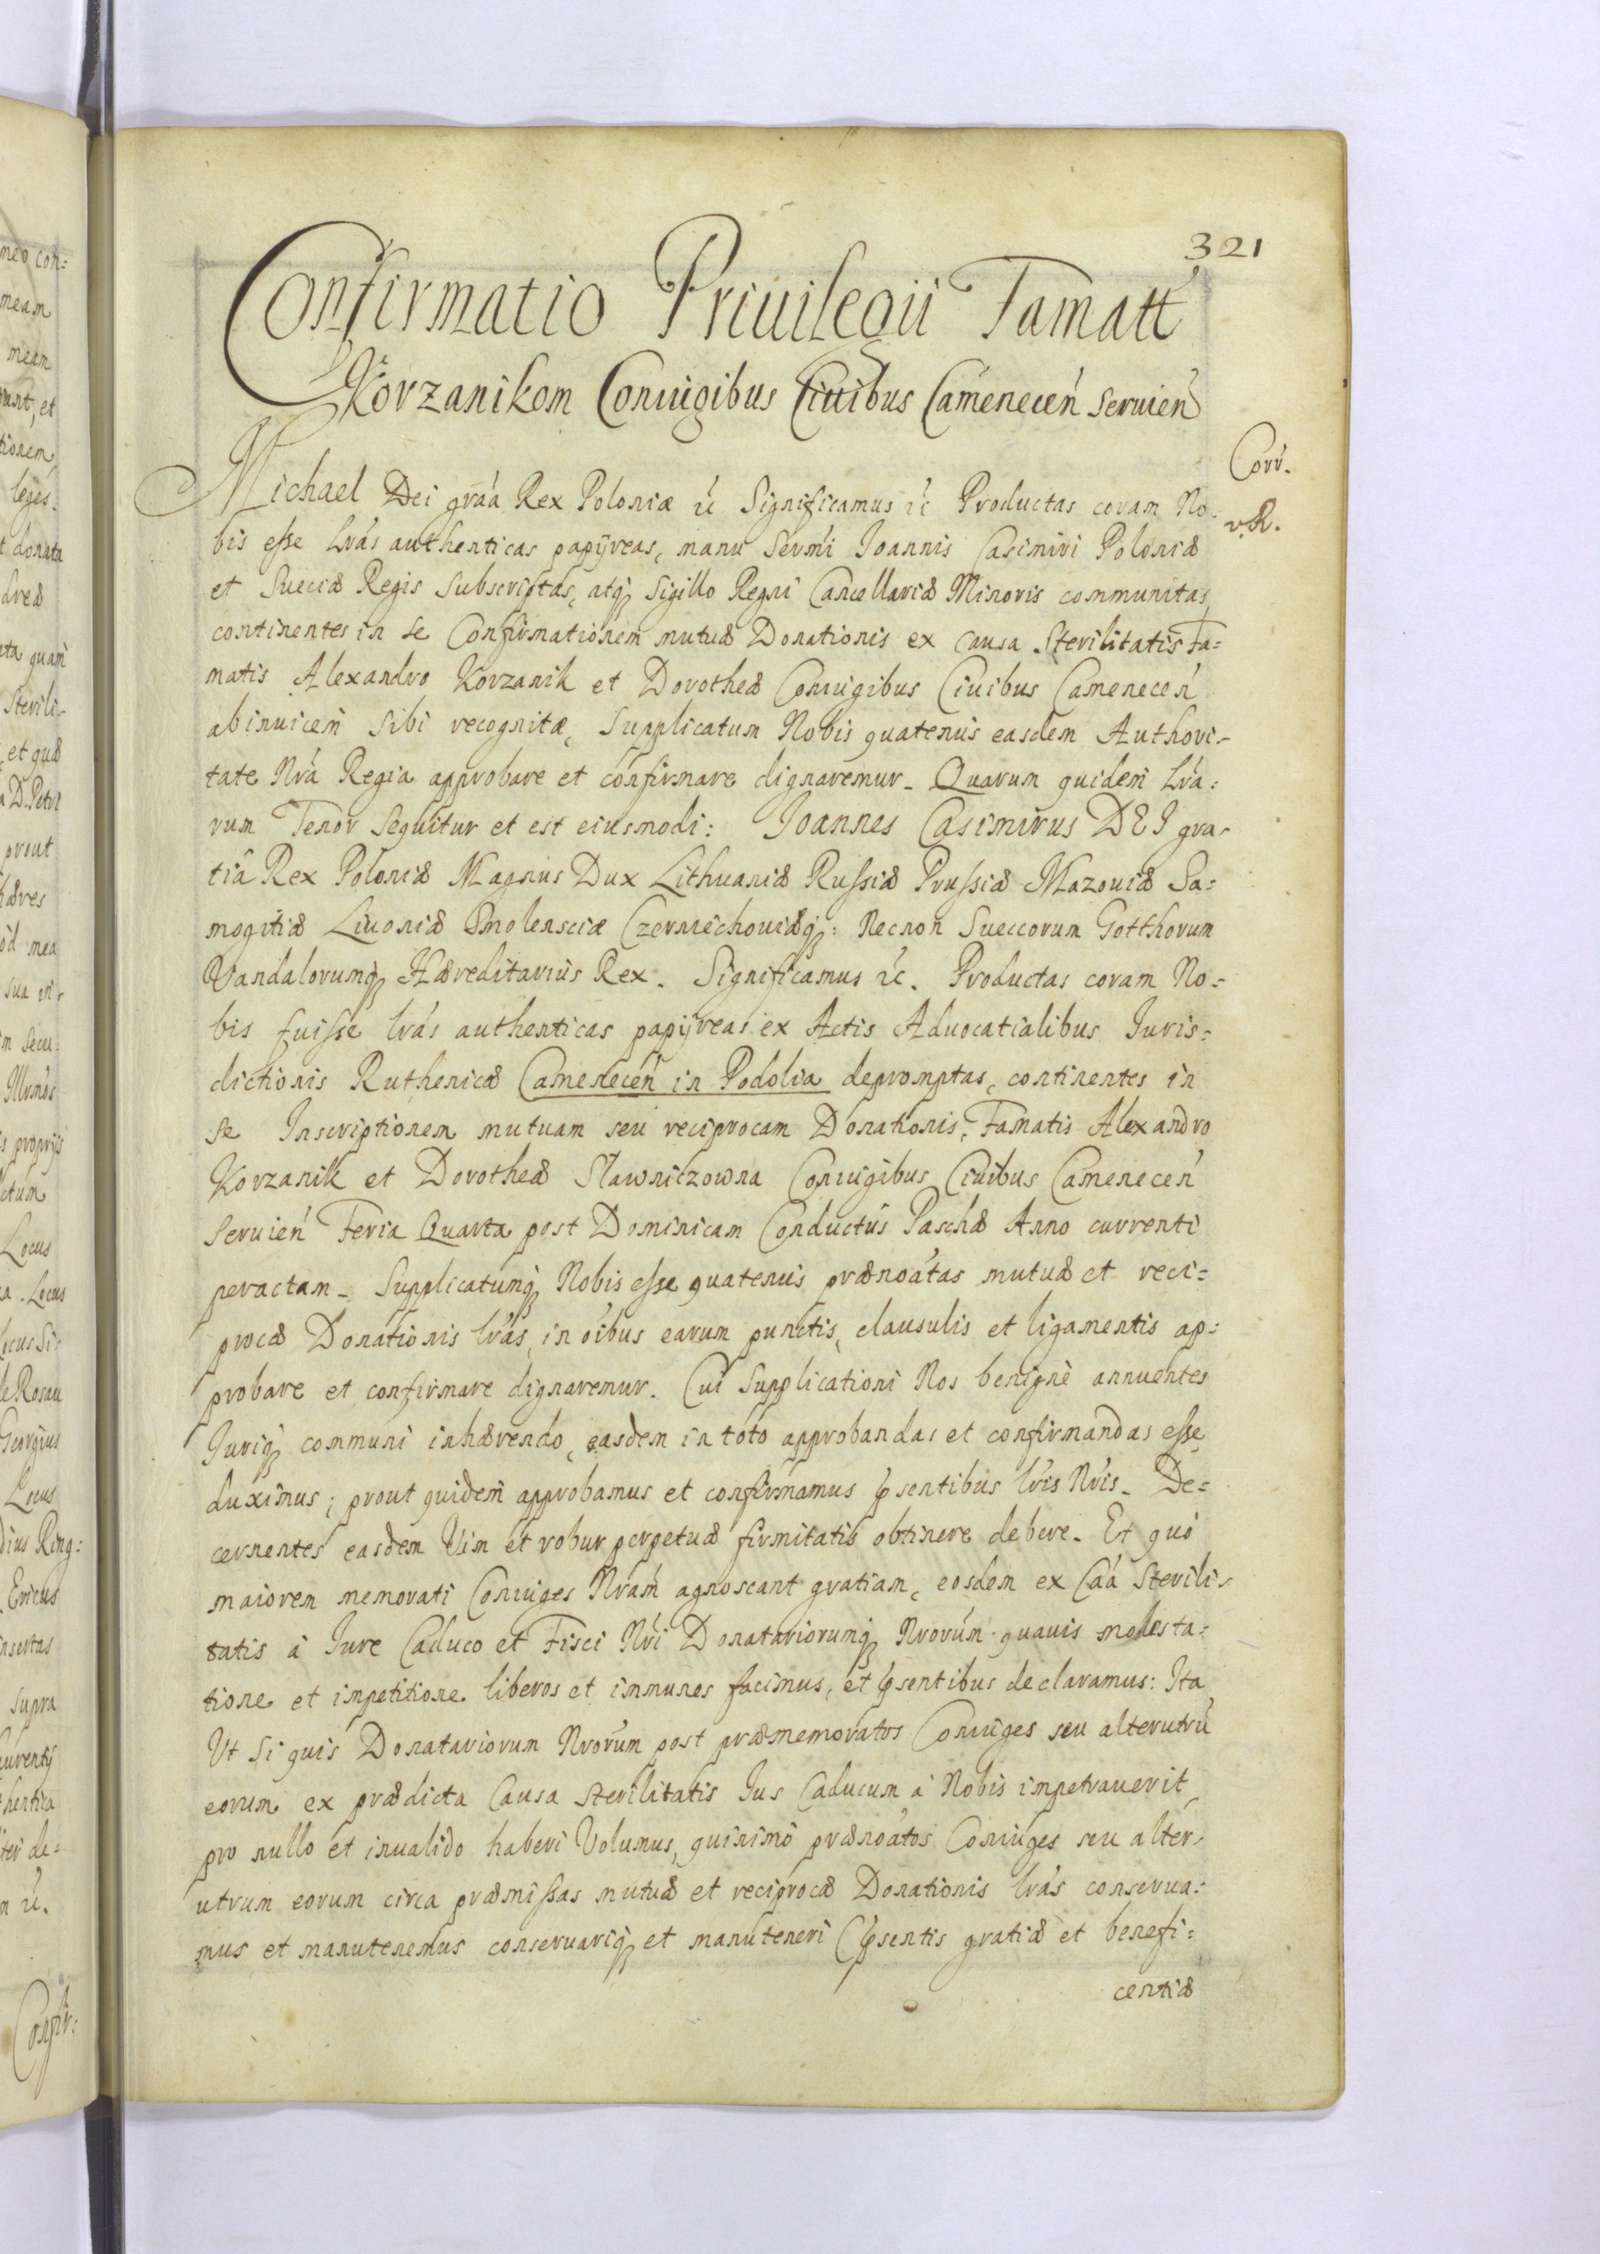 321
Confirmatio Priuilegii Famatt
Korzanikom Coniugibus Ciuibus Camenecen̄ seruien̄
Corr.
v. R.
Michael Dei grãa Rex Poloniæ &c Significamus &c Productas coram No=
bis esse Lrãs authenticas papÿreas, manu Sermi Joannis Casimiri Poloniæ
et Sueciæ Regis subscriptas, atq₃ Sigillo Regni Cancellariæ Minoris communitas,
continentes in se Confirmationem mutuæ Donationis ex causa sterilitatis Fa=
matis Alexandro Korzanik et Dorotheæ Coniugibus Ciuibus Camenecen̄
abinuicem sibi recognitæ, Supplicatum Nobis quatenus easdem Authori=
tate Nrã Regia approbare et confirmare dignaremur. Quarum quidem Lrã=
rum Tenor sequitur et est eiusmodi: Joannes Casimirus DEI gra=
tiâ Rex Poloniæ Magnus Dux Lithuaniæ Russiæ Prussiæ Mazouiæ Sa=
mogitiæ Liuoniæ Smolensciæ Czerniechouiæq₃: Necnon Sueccorum Gotthorum
Vandalorumq₃ Hæreditarius Rex. Significamus &c. Productas coram No=
bis fuisse lrãs authenticas papÿreas ex Actis Aduocatialibus Juris=
dictionis Ruthenicæ Camenecen̄ in Podolia depromptas, continentes in
se Inscriptionem mutuam seu reciprocam Donationis, Famatis Alexandro
Korzanik et Dorotheæ Sławniczowna Coniugibus Ciuibus Camenecen̄
seruien̄ Feria Quarta post Dominicam Conductûs Paschæ Anno currenti
peractam. Supplicatumq₃ Nobis esse quatenus prænoãtas mutuæ et reci=
procæ Donationis lrãs, in oĩbus earum punctis, clausulis et ligamentis ap=
probare et confirmare dignaremur. Cui Supplicationi Nos benignè annuentes
Juriq₃ communi inhærendo, easdem in toto approbandas et confirmandas esse
duximus; prout quidem approbamus et confirmamus p̃sentibus lrĩs Nrĩs. De=
cernentes easdem Vim et robur perpetuæ firmitatis obtinere debere. Et quò
maiorem memorati Coniuges Nrãm agnoscant gratiam, eosdem ex Cãa sterili=
tatis à Jure Caduco et Fisci Nrĩ Donatariorumq₃ Nrorũm quauis molesta=
tione et impetitione liberos et immunes facimus, et p̃sentibus declaramus: Ita
Vt si quis Donatariorum Nrorũm post præmemoratos Coniuges seu alterutrũ
eorum ex prædicta Causa sterilitatis Jus Caducum à Nobis impetrauerit,
pro nullo et inualido haberi Volumus, quinimò prænoãtos Coniuges seu alter=
utrum eorum circa præmissas mutuæ et reciprocæ Donationis lrãs conserua=
mus et manutenemus conseruariq₃ et manuteneri p̃sentis gratiæ et benefi=
centiæ